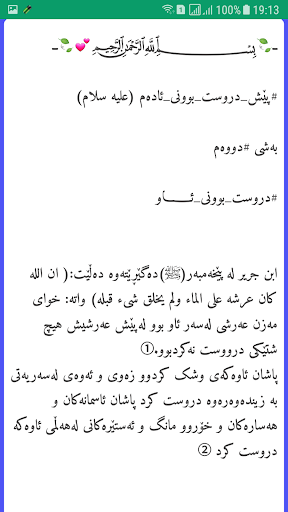 100% 19:13
-🍃💕﷽🍃-
#پێش_دروست_بوونی_ئادەم (علیە سلام)
بەشی #دووەم
#دروست_بوونی_ئـــــاو
ابن جریر لە پێخەمبەر(ﷺ)دەگێڕێتەوە دەڵێت:( ان الله
كان عرشه على الماء ولم یخلق شیء قبله) واتە: خوای
مەزن عەرشی لەسەر ئاو بوو لەپێش عەرشیش هیچ
شتێکی درووست نەکردبوو.①
پاشان ئاوەکەی وشک کردوو زەوی و ئەوەی لەسەریەتی
بە زیندەوەرەوە دروست کرد پاشان ئاسمانەکان و
هەسارەکان و خۆروو مانگ و ئەستێرەکانی لەهەڵمی ئاوەکە
دروست کرد ②